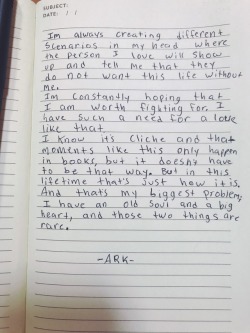 SUBJECT:
DATE: / /
Im always creating different
scenarios in my head where
the person I love will show
up and tell me that they
do not want this life without
me.
Im constantly hoping that
I am worth fighting for. I
have such a need for a love
like that.
I know its Cliche and that
moments like this only happen
in books, but it doesnt have
to be that way. But in this
lifetime that's just how it is.
And thats my biggest problem,
I have an old soul and a big
heart, and those two things are
rare.
-ARK-